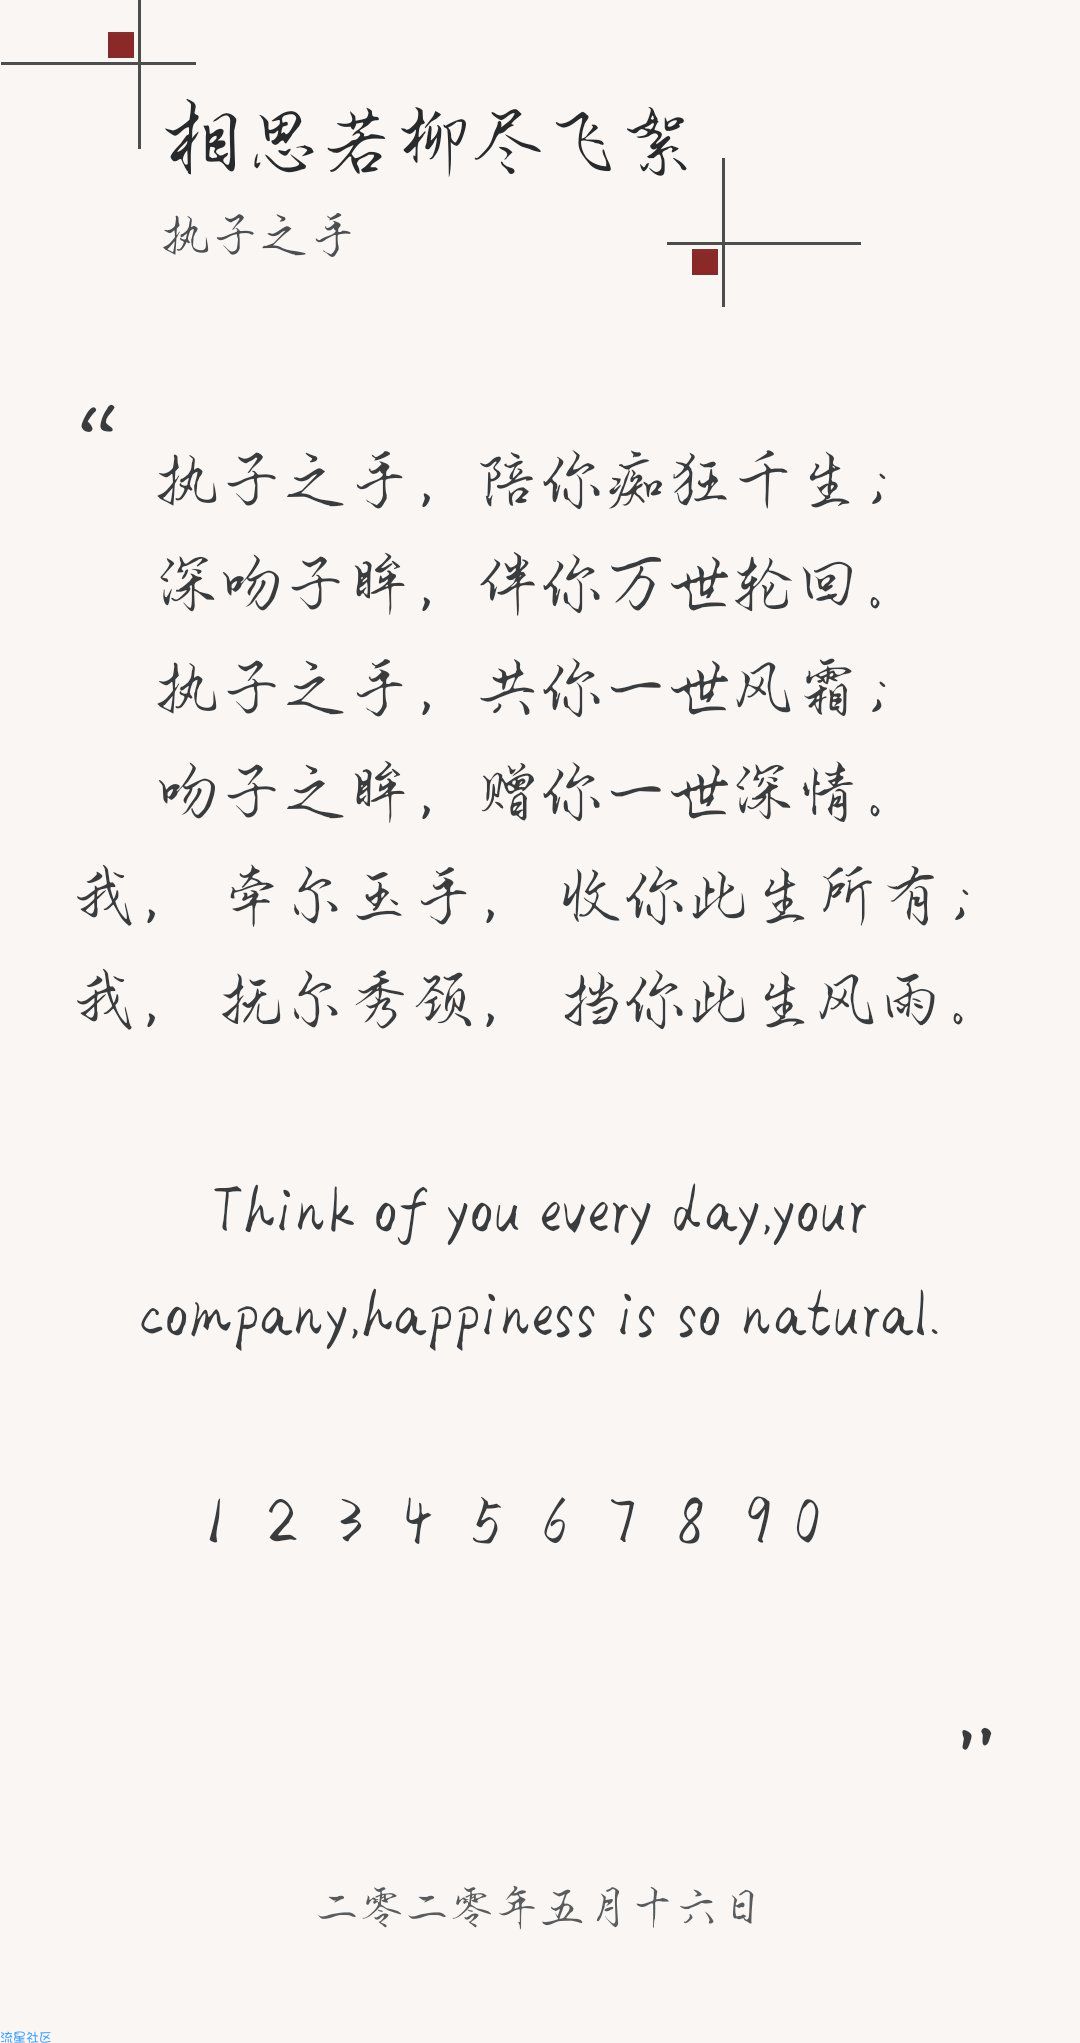 相思若柳尽飞絮
执子之手
“
执子之手，陪你痴狂千生；
深吻子眸，伴你万世轮回。
执子之手，共你一世风霜；
吻子之眸，赠你一世深情。
我， 牵尔玉手， 收你此生所有；
我， 抚尔秀颈， 挡你此生风雨。
Think of you every day,your
company,happiness is so natural.
1 2 3 4 5 6 7 8 9 0
”
二零二零年五月十六日
流星社区